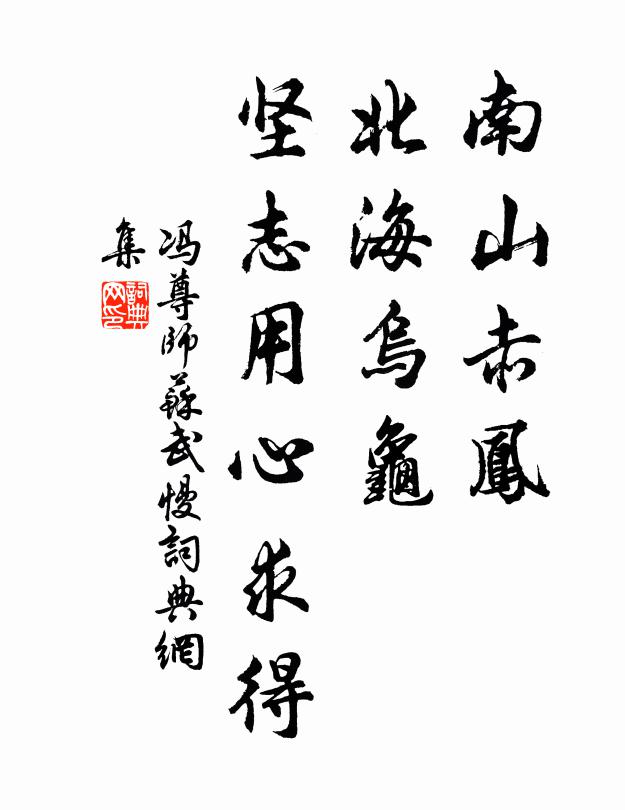 南山赤鳳
北海烏龜
坚志用心求得
冯尊師蘇武慢詞典網
集
詞典网印